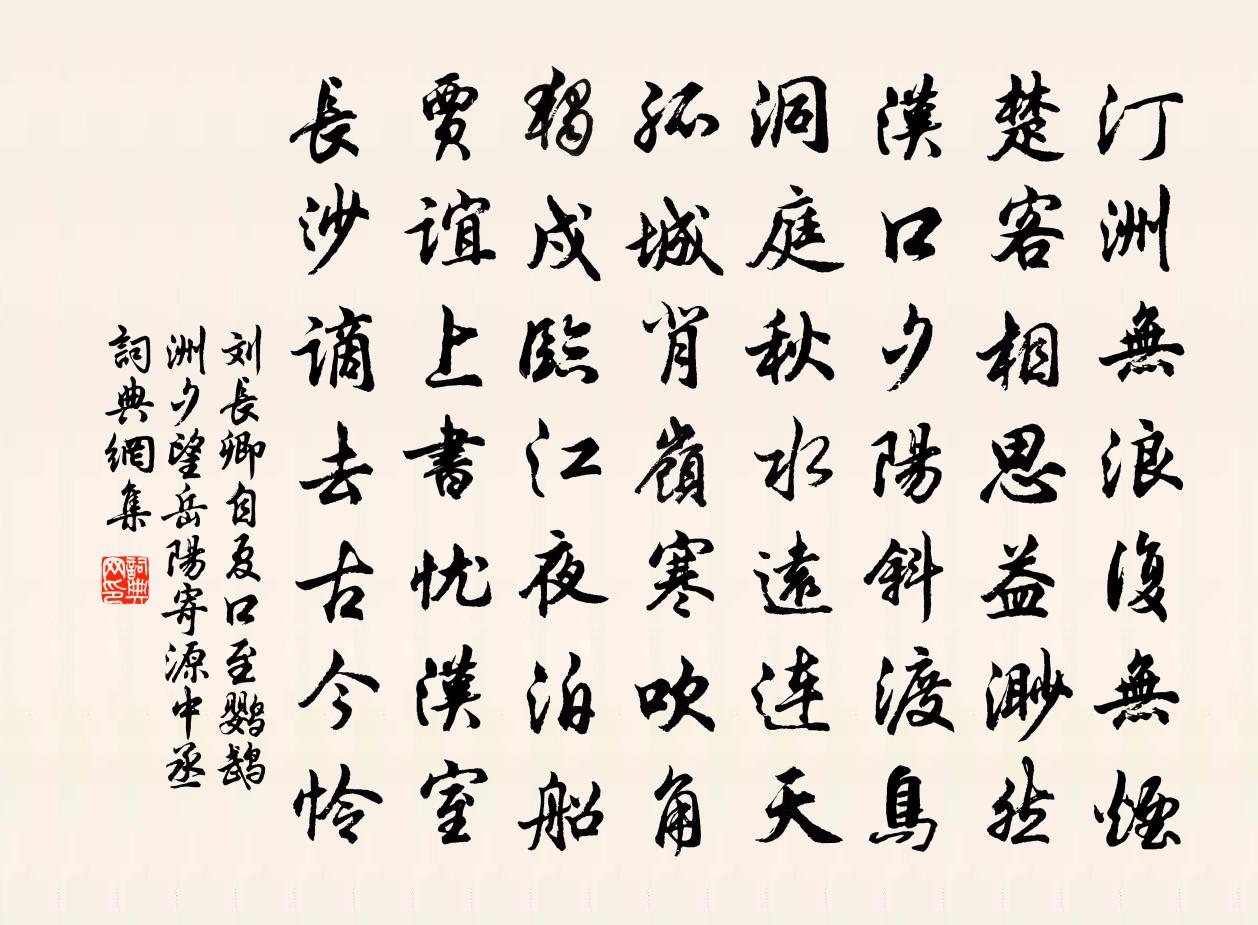 汀洲無浪復無煙
楚客相思益渺然
漢口夕陽斜渡鳥
洞庭秋水遠連天
孤城背嶺寒吹角
獨戍臨江夜泊船
賈誼上書憂漢室
長沙謫去古今憐
刘長卿自夏口至鹦鹉
洲夕望岳陽寄源中丞
詞典網集
詞典网印